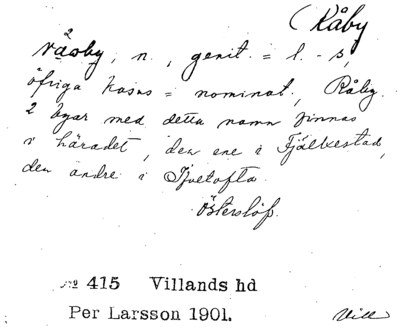 (Råby
2
råsby, n., genit. = l. - s,
öfriga kasus = nominat., Råby.
2 byar med detta namn finnas
i häradet, den ene i Fjälkestad,
den andre i Ifvetofta.
Österslöf.
№ 415 Villands hd
Per Larsson 1901.
Vill